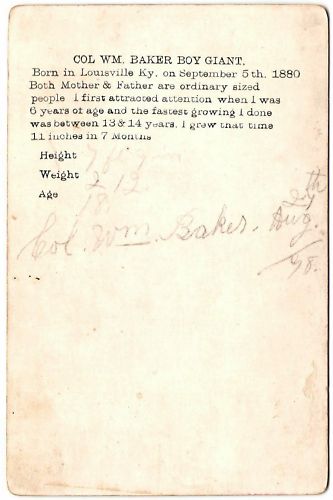 COL WM. BAKER BOY GIANT.
Born in Louisville Ky. on September 5th, 1880
Both Mother & Father are ordinary sized
people I first attracted attention when I was
6 years of age and the fastest growing I done
was between 13 & 14 years. I grew that time
11 inches in 7 Months
Height 7
Weight 212
Age 18
Col. Wm. Baker. Aug.
/98.